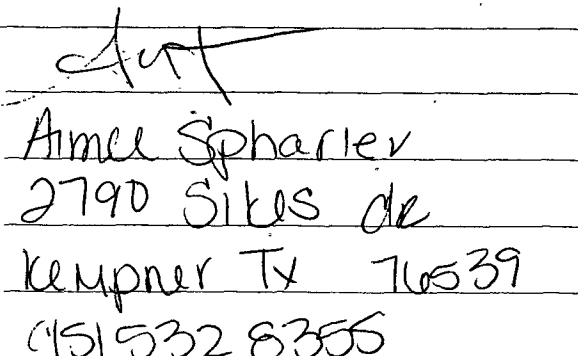 Aimee Spharler
2790 Sikes dr
Kempner Tx 76539
532 8355